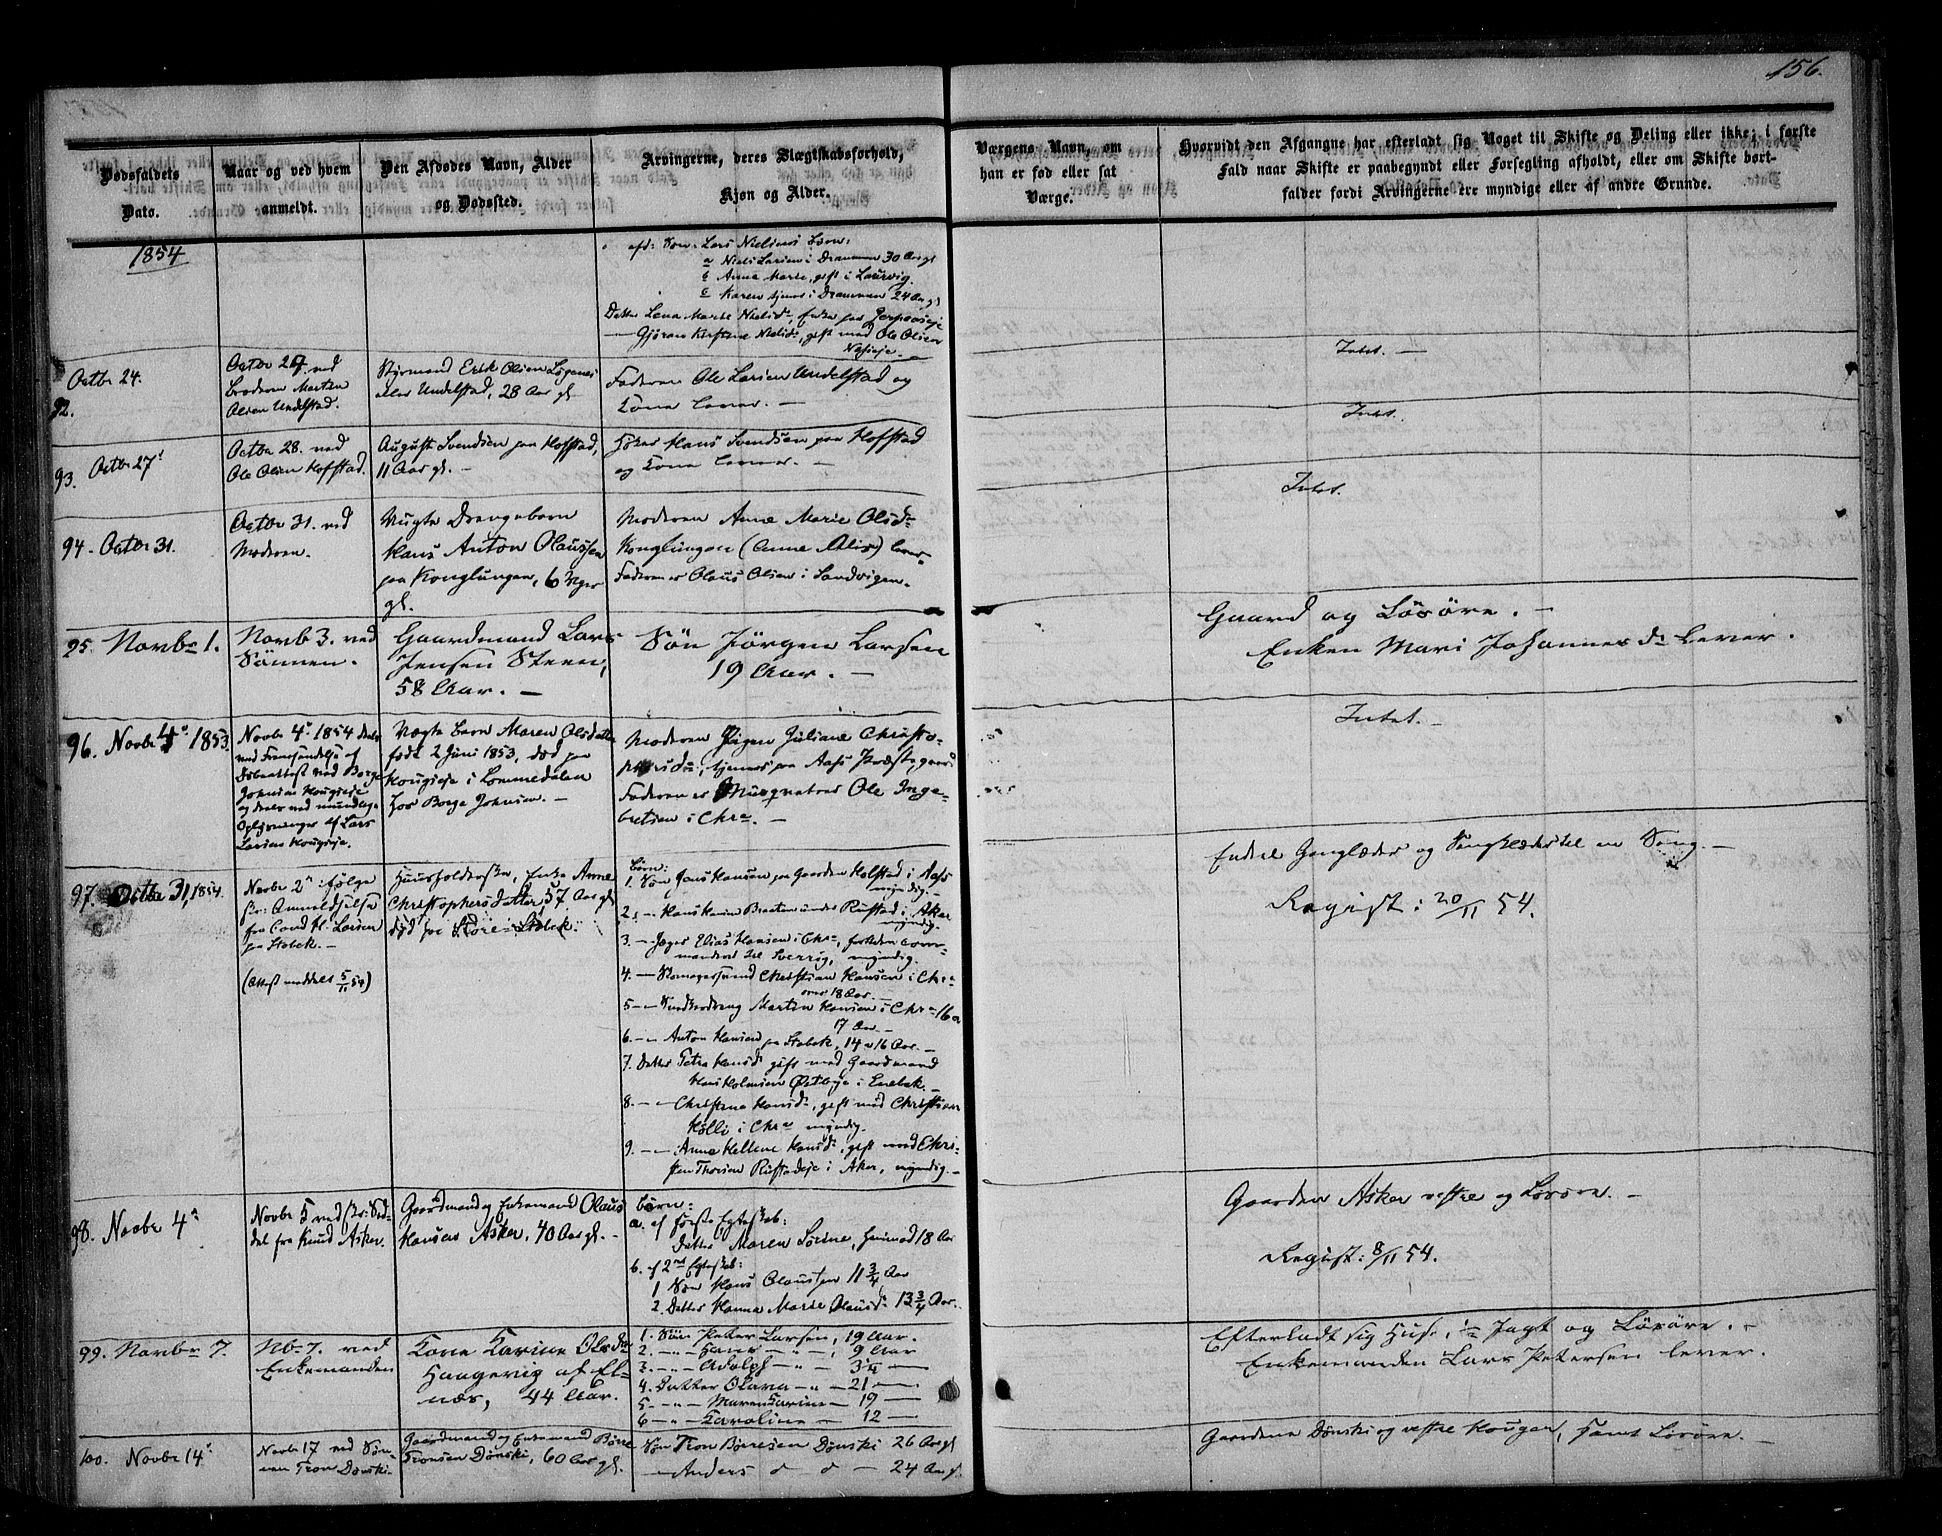 156.
Dødsfaldets
Dato.
Naar og ved hvem
anmeldt.
Den Afdødes Navn, Alder
og Dødssted.
Arvingerne, deres Slægtskabsforhold,
Kjøn og Alder.
Værgens Navn, om
han er fød eller sat
Værge.
Hvorvidt den Afgangne har efterladt sig Noget til Skifte og Deling eller ikke; i første
Fald naar Skifte er paabegyndt eller Forsegling afholdt, eller om Skifte bort-
falder fordi Arvingerne ere myndige eller af andre Grunde.
1854
afd: Søn: Lars Nielsens Børn:
a Niels Larsen i Drammen 30 Aar gl
b Anne Marie, gift i Laurvig.
c Karen tjener i Drammen 24 Aar gl
Datter Lena Marie Nielsd:, Enke paa
Gjøran Kirstine Nielsd:, gift med Ole Olsen
Næseie.
92.
Octbr 24.
Octbr 27. ved
Broderen Martin
Olsen Undelstad.
Styrmand Erik Olsen
eller Undelstad, 28 Aar gl
Faderen Ole Larsen Undelstad og
Kone lever. —
Intet. —
93. Octbr 27'
Octbr 28. ved
Ole Olsen Hofstad.
August Svendsen paa Hofstad,
11 Aar gl. —
Hans Svendsen paa Hofstad
og Kone lever. —
Intet.
94. Octbr 31.
Octbr 31. ved
Moderen.
Uægte Drengebarn
Hans Anton Olaussen
paa Konglungen, 6 Uger
gl.
Moderen Anne Marie Olsdr
Konglungen lever
Faderen er Olaus Olsen i Sandvigen.
Intet.
95. Novbr 1.
Novb 3. ved
Sønnen.
Gaardmand Lars
Jensen Steen,
58 Aar. —
Søn Jörgen Larsen
19 Aar. —
Gaard og Lösöre. —
Enken Mari Johannesdr lever.
96. Novbr 4' 1853.
Novbr 4' 1854 deels
ved Fremsendelse af
Dødsattest ved Borge
Johnsen Hougseie
og deels ved mundlige
Oplysninger af Lars
Larsen Hougseie.
Uægte Barn Maren Olsdatter
født 2 Juni 1853, død paa
Hougseie i Lommedalen
hos Borge Johnsen. —
Moderen Pigen Juliane Christo-
phersdr:, tjener paa Aas Præstegaard
Faderen er Muursvend Ole Inge-
bretsen i Chra. —
Intet. —
97. Octbr 31, 1854.
Novbr 2 ifølge
skr: Anmeldelse
fra Cand H. Larsen
paa Stabek. —
(Attest meddelt 5/11 54)
Huusholderske, Enke Anne
Christophersdatter, 57 Aar gl
død paa Store Stabek.
Børn:
1. Søn Hansen paa Gaarden Holstad i Aas
myndig. —
2. — Hans Hansen Braaten under Rustad i Aker
myndig.
3. — Jæger Elias Hansen i Chra, for tiden com-
manderet til Sverrig, myndig.
4. — Skomagersvend Christian Hansen i Chra
over 18 Aar. —
5 — Martin Hansen i Chra 16 a
17 Aar. —
6. — Anton Hansen paa Stabek, 14 a 16 Aar. —
7. Datter Petra Hansd: gift med Gaardmand
Hans Holmsen Østbye i Enebak. —
8. — Christine Hansd:, gift med Christian
Kølli i Chra myndig.
9. — Anne Hellene Hansd: gift med Chri-
sten Thorsen Rustadeie i Aker, myndig. —
Endeel Gangklæder og Sengklæder til en Seng. —
Regist: 20/11 54.
98. Novbr 4'
Novbr 5 ved skr: Sed-
del fra Knud Asker.
Gaardmand og Enkemand Olaus
Hansen Asker, 40 Aar gl. —
Børn:
a. af første Egteskab:
Datter Maren Sørine, henimod 18 Aar
b. af 2det Egteskab:
1 Søn Hans Olaussen 11 3/4 Aar
2. Datter Hanna Marie Olausd: 13 3/4 Aar.
Gaarden Asker vestre og Løsøre. —
Regist: 8/11 54.
99. Novbr 7.
Nb. 7. ved
Enkemanden
Kone Karine Olsdr
Haagevig af El-
næs, 44 Aar.
1. Søn Peter Larsen, 19 Aar.
2. — " — Hans — " —, 9 Aar
3. — " — Adolph — " — 3/4 —
4. Datter Olava — " — 21 —
5 — " — Maren Karine — 19 —
6 — " — Karoline — 12 —
Efterladt sig Huse, 1/2 Jagt og Lösöre. —
Enkemanden Lars Petersen lever.
100. Novbr 14'
Novbr 17 ved Søn-
nen Tron Dønski.
Gaardmand og Enkemand Børre
Tronsen Dønski, 60 Aar gl.
Søn Tron Børresen Dønski 26 Aar gl
— Anders d d — 24 Aar gl
Gaardene Dønski og vestre Hougen, samt Løsøre. —